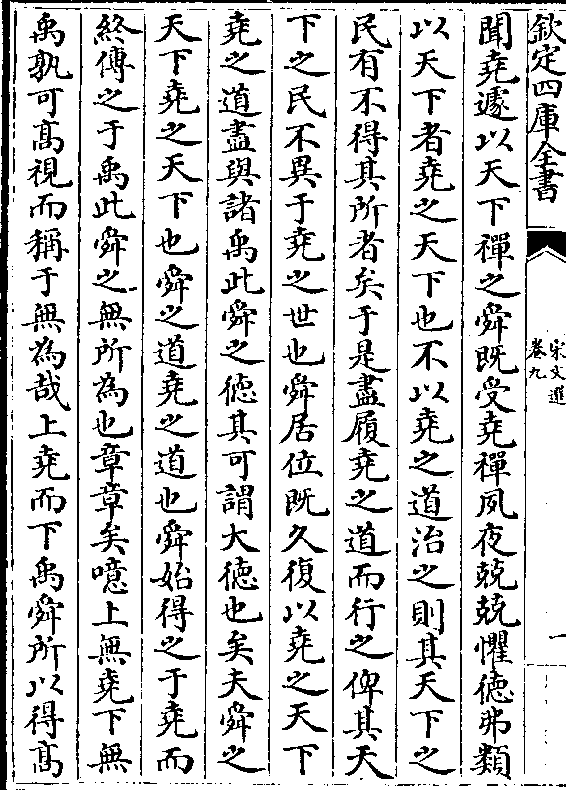 欽定四庫全書
宋文選
卷九
一
聞堯遽以天下禪之舜既受堯禪夙夜兢兢懼德弗類
以天下者堯之天下也不以堯之道治之則其天下之
民有不得其所者矣于是盡履堯之道而行之俾其天
下之民不異于堯之世也舜居位既久復以堯之天下
堯之道盡與諸禹此舜之德其可謂大德也矣夫舜之
天下堯之天下也舜之道堯之道也舜始得之于堯而
終傳之于禹此舜之無所為也章章矣噫上無堯下無
禹孰可髙視而稱于無為哉上堯而下禹舜所以得髙